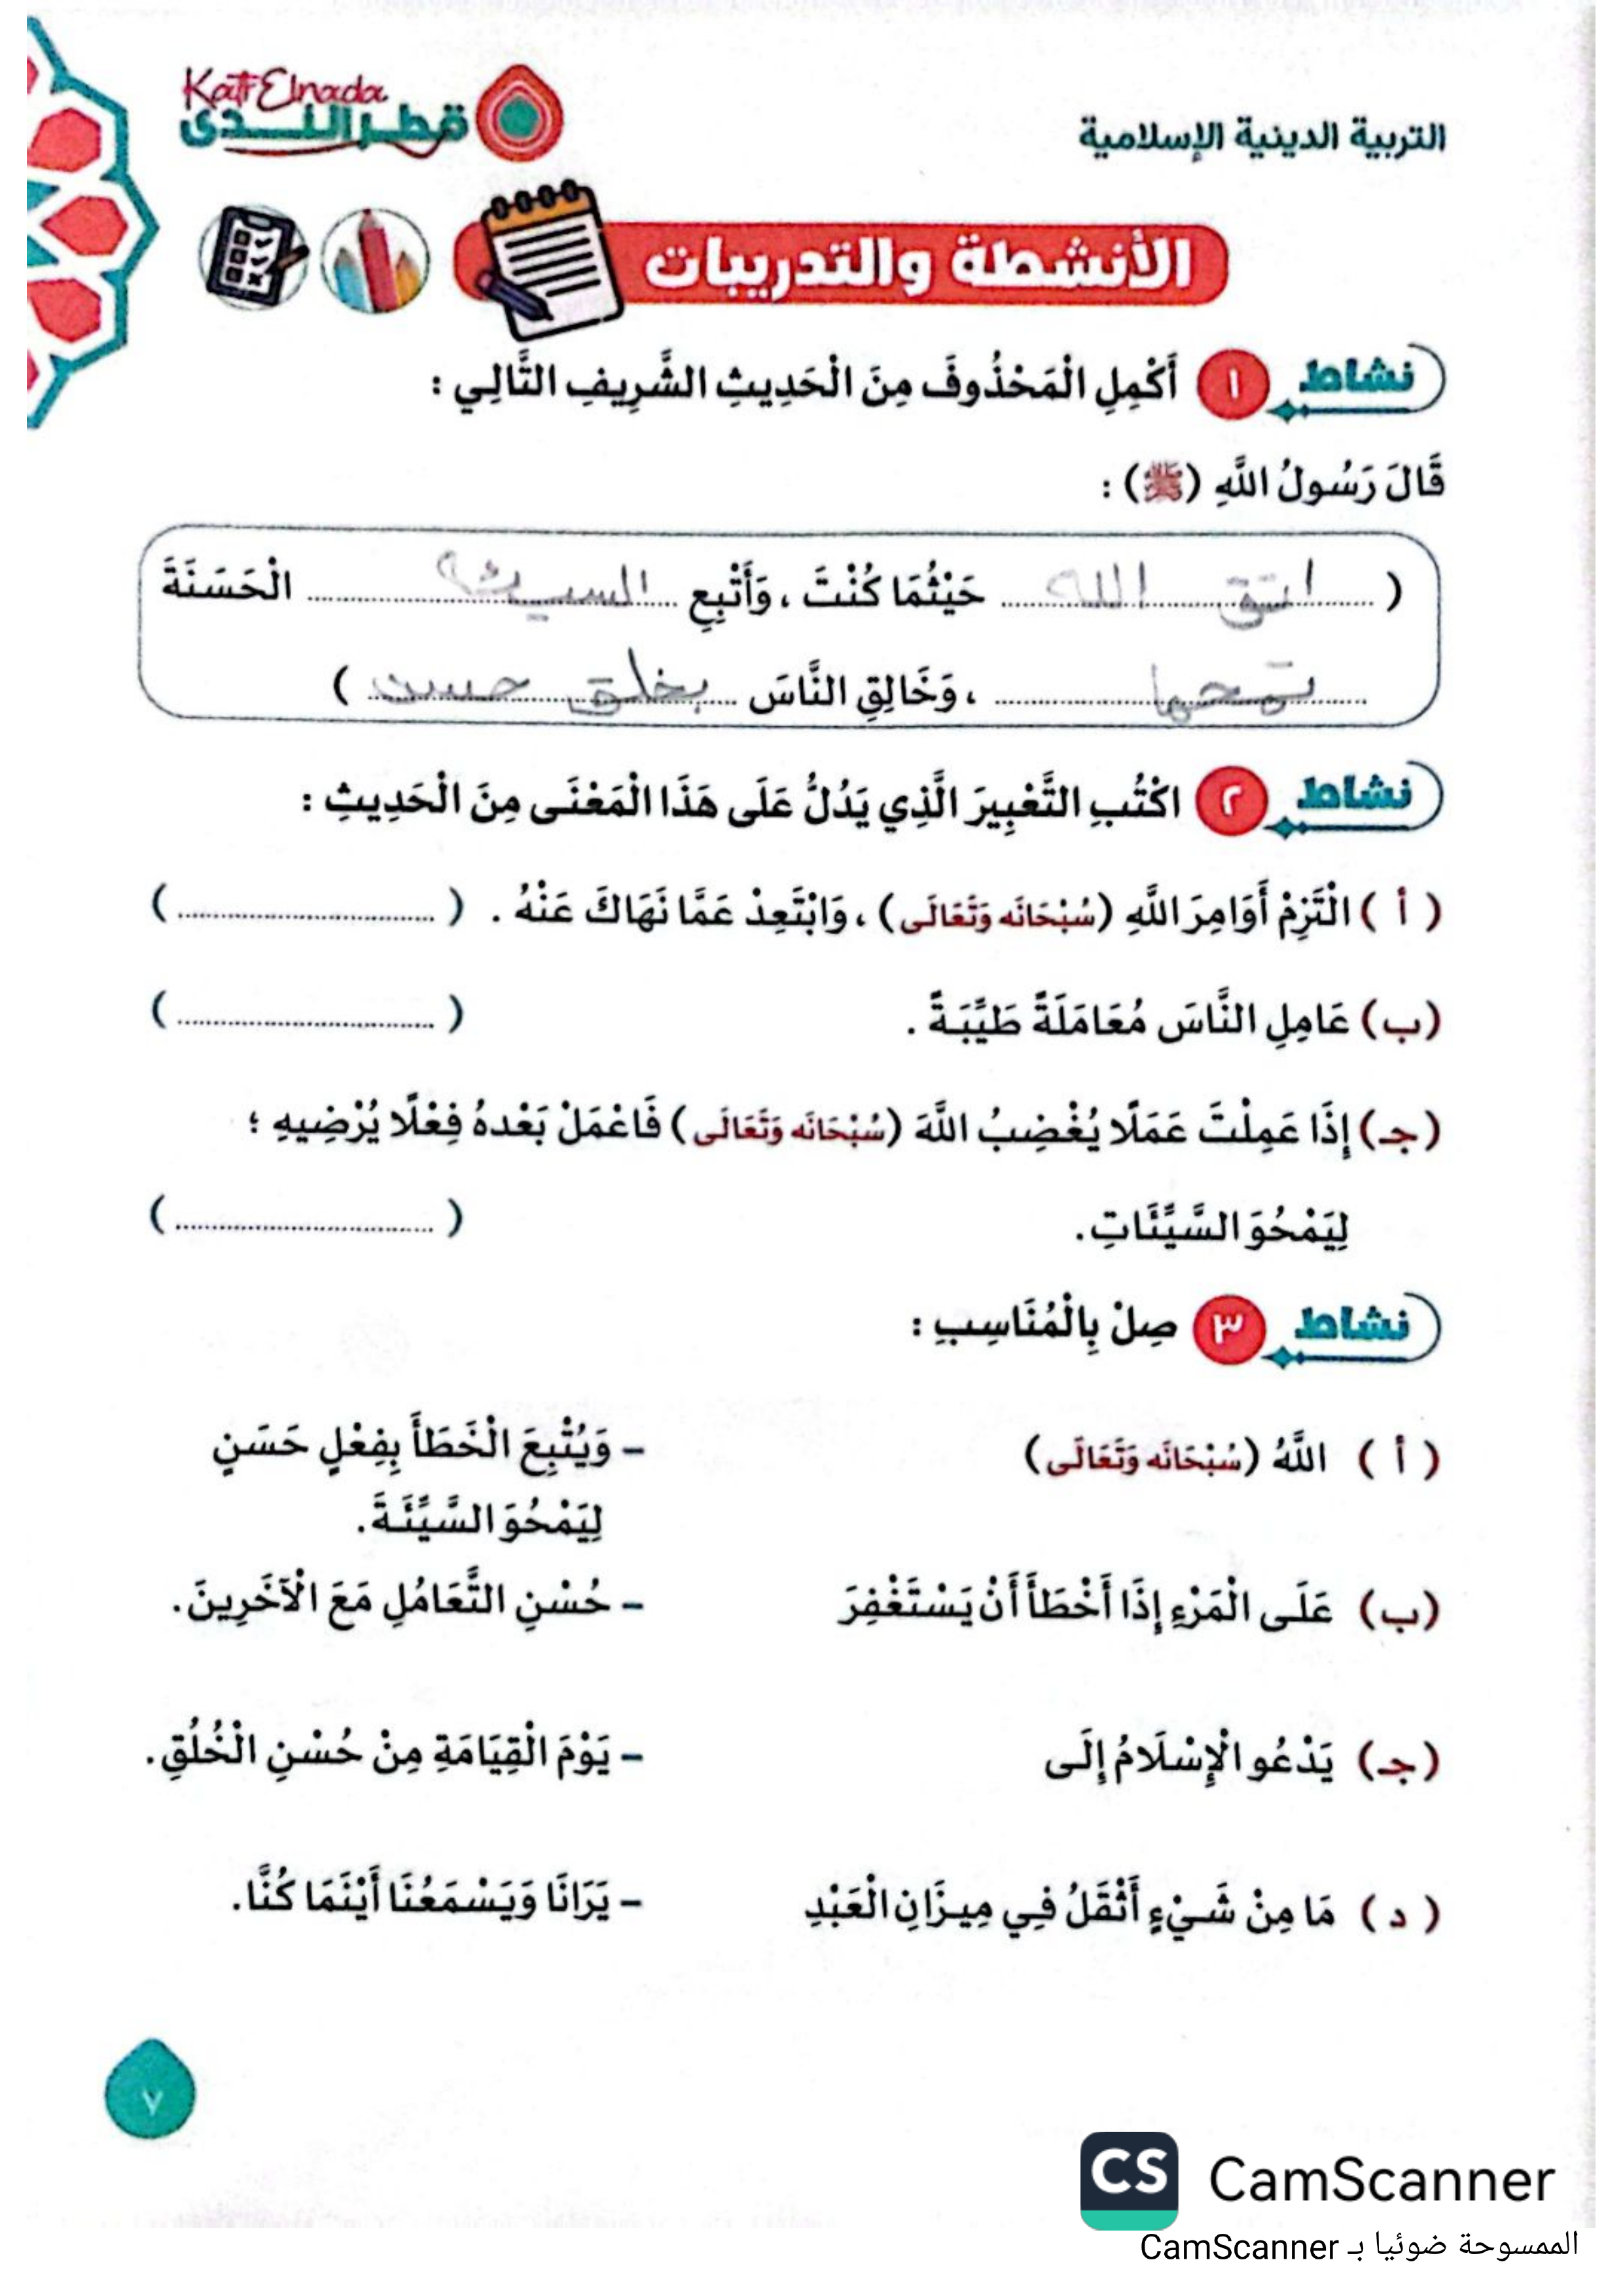 التربية الدينية الإسلامية
Katr Elnada
قطر الندى
الأنشطة والتدريبات
نشاط ١ أَكْمِلِ الْمَحْذُوفَ مِنَ الْحَدِيثِ الشَّرِيفِ التَّالِي :
قَالَ رَسُولُ اللَّهِ (ﷺ) :
( اتق الله حَيْثُمَا كُنْتَ ، وَأَتْبِعِ السيئة الْحَسَنَةَ
تمحها ، وَخَالِقِ النَّاسَ بخلق حسن )
نشاط ٢ اكْتُبِ التَّعْبِيرَ الَّذِي يَدُلُّ عَلَى هَذَا الْمَعْنَى مِنَ الْحَدِيثِ :
( أ ) الْتَزِمْ أَوَامِرَ اللَّهِ (سُبْحَانَه وَتَعَالَى) ، وَابْتَعِدْ عَمَّا نَهَاكَ عَنْهُ . ( .............................. )
(ب) عَامِلِ النَّاسَ مُعَامَلَةً طَيِّبَةً . ( .............................. )
(جـ) إِذَا عَمِلْتَ عَمَلًا يُغْضِبُ اللَّهَ (سُبْحَانَه وَتَعَالَى) فَاعْمَلْ بَعْدهُ فِعْلًا يُرْضِيهِ ؛
لِيَمْحُوَ السَّيِّئَاتِ. ( .............................. )
نشاط ٣ صِلْ بِالْمُنَاسِبِ :
( أ ) اللَّهُ (سُبْحَانَه وَتَعَالَى) – وَيُتْبِعَ الْخَطَأَ بِفِعْلٍ حَسَنٍ
لِيَمْحُوَ السَّيِّئَةَ.
(ب) عَلَى الْمَرْءِ إِذَا أَخْطَأَ أَنْ يَسْتَغْفِرَ – حُسْنِ التَّعَامُلِ مَعَ الْآخَرِينَ.
(جـ) يَدْعُو الْإِسْلَامُ إِلَى – يَوْمَ الْقِيَامَةِ مِنْ حُسْنِ الْخُلُقِ.
( د ) مَا مِنْ شَيْءٍ أَثْقَلُ فِي مِيزَانِ الْعَبْدِ – يَرَانَا وَيَسْمَعُنَا أَيْنَمَا كُنَّا.
٧
CS CamScanner
الممسوحة ضوئيا بـ CamScanner